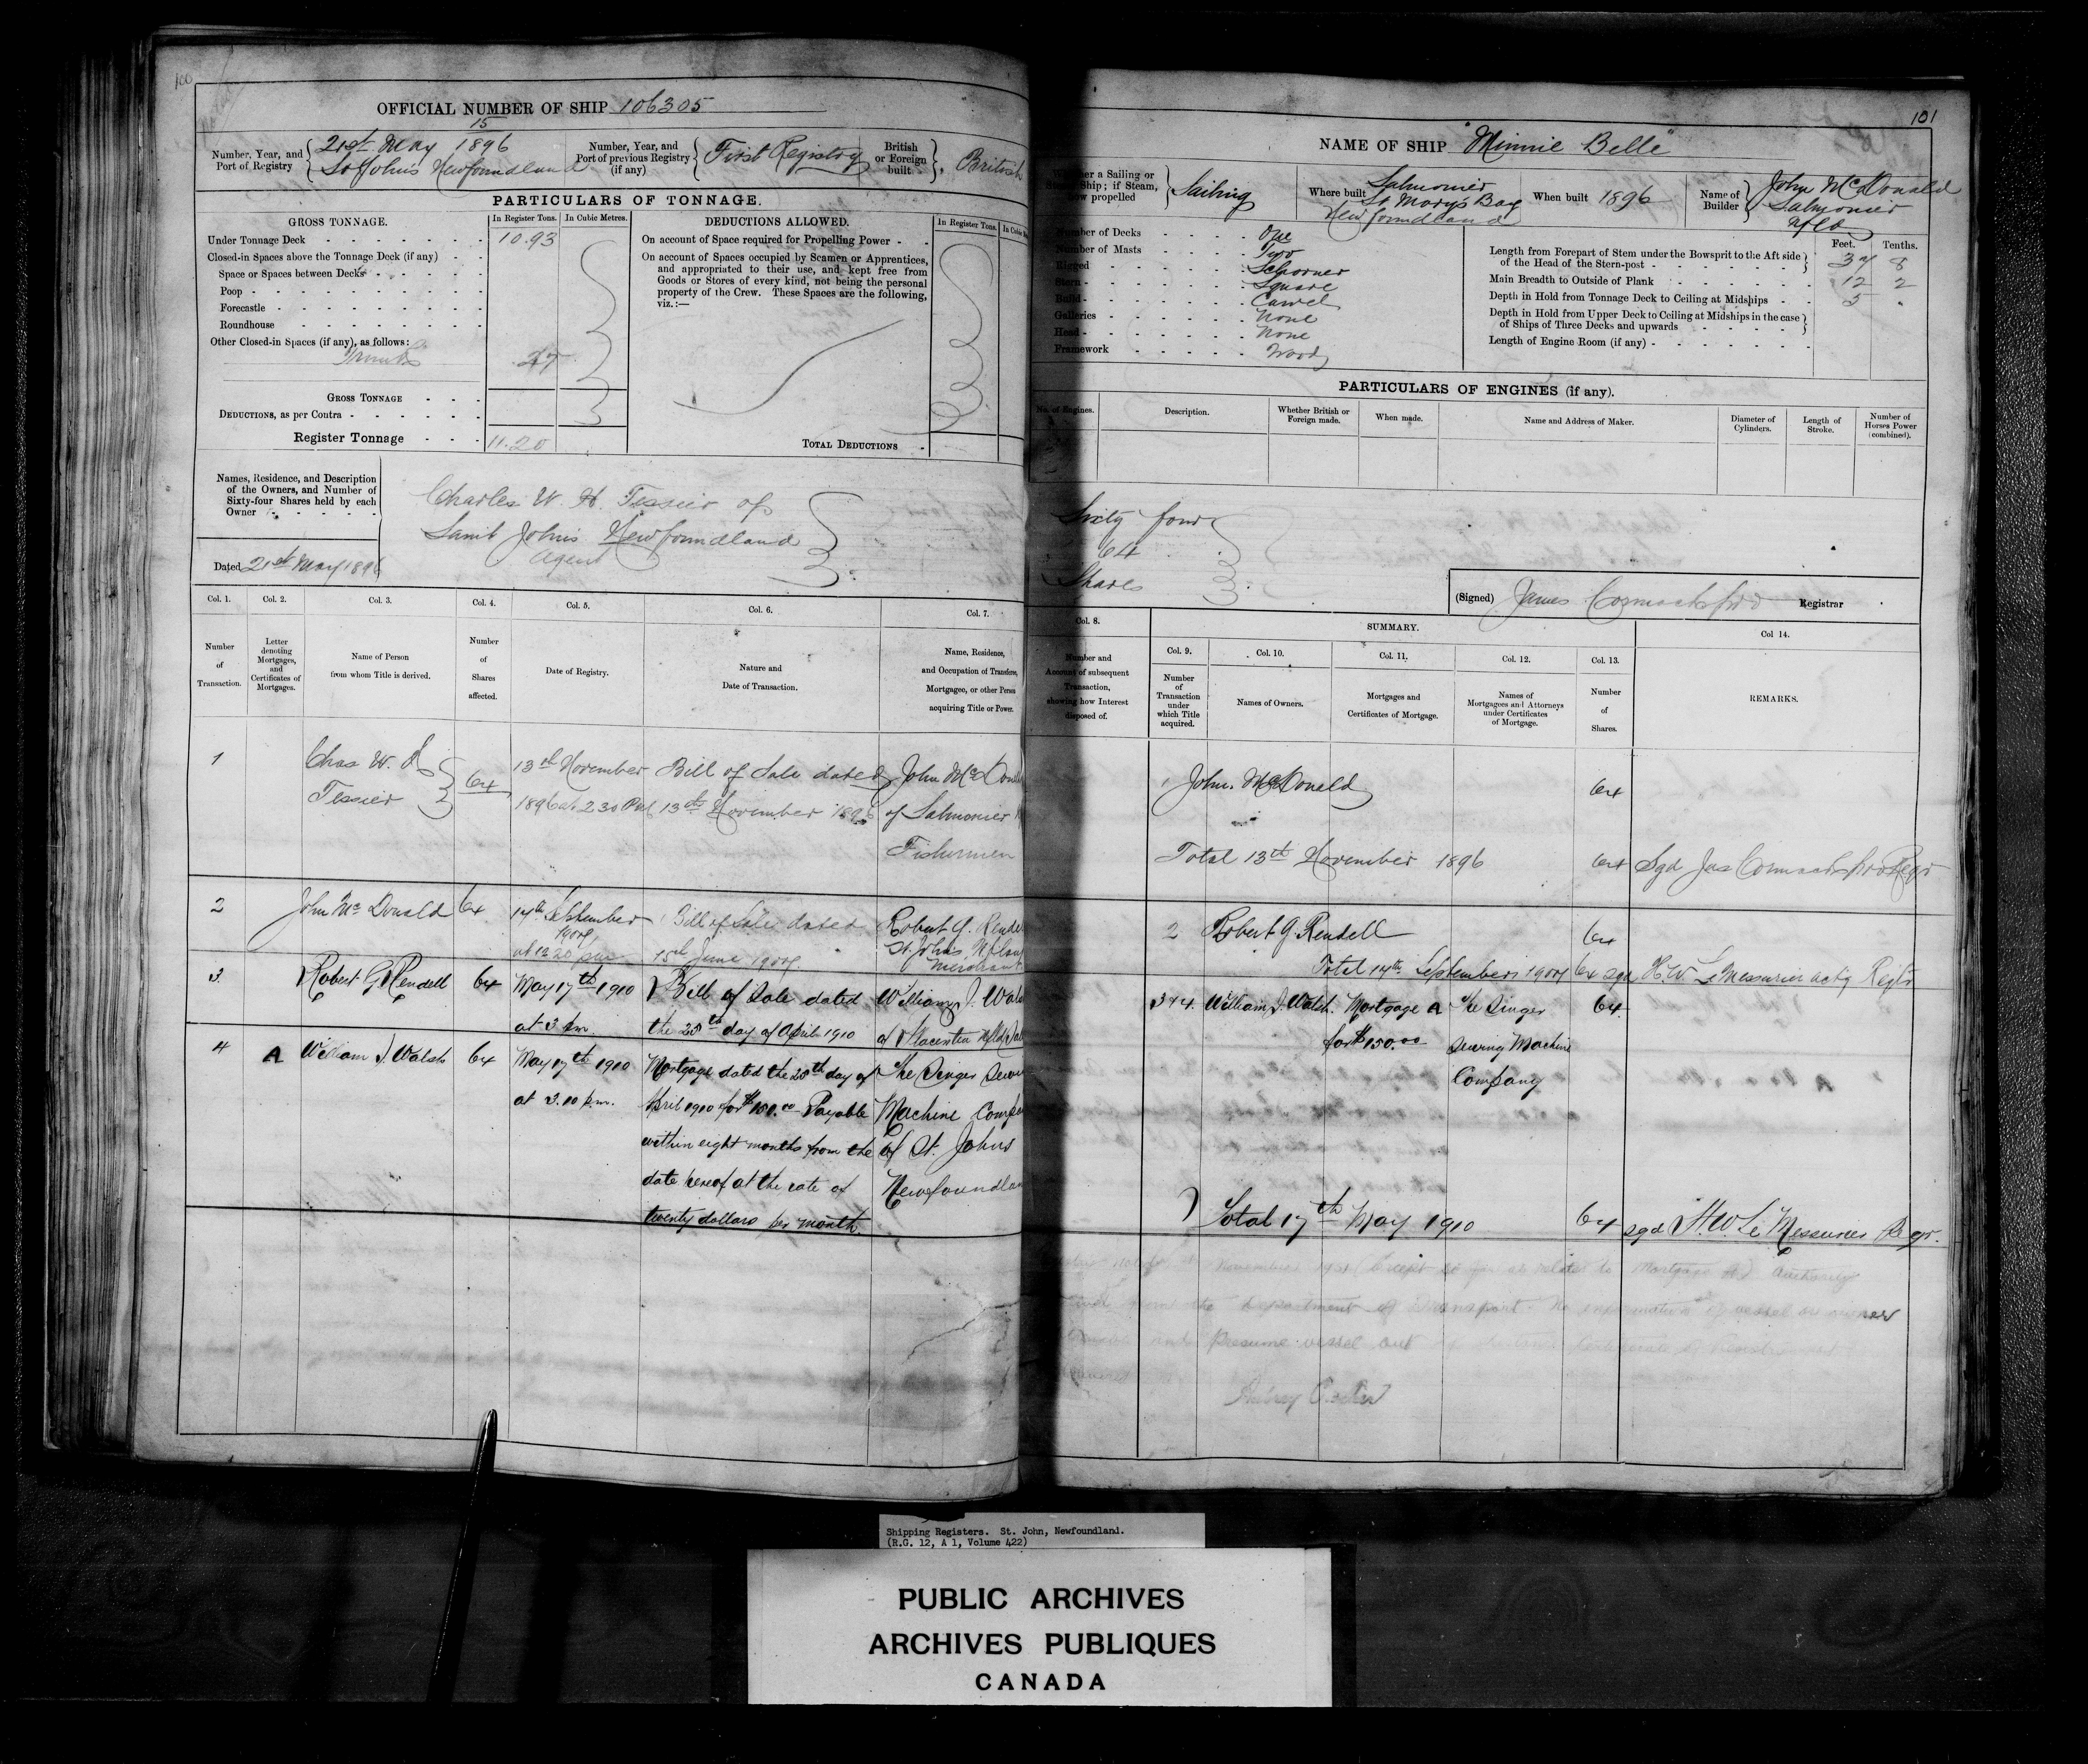 100
OFFICIAL NUMBER OF SHIP 106305
Number, Year, and Port of Registry
15
21st May 1896
St John's Newfoundland
Number, Year, and Port of previous Registry (if any)
First Registry
British or Foreign built
British
PARTICULARS OF TONNAGE.
GROSS TONNAGE.
In Register Tons.
In Cubic Metres.
Under Tonnage Deck 10.93
Closed-in Spaces above the Tonnage Deck (if any)
Space or Spaces between Decks
Poop
Forecastle
Roundhouse
Other Closed-in Spaces (if any), as follows:
Trunks .27
GROSS TONNAGE
DEDUCTIONS, as per Contra
Register Tonnage 11.20
DEDUCTIONS ALLOWED.
In Register Tons.
On account of Space required for Propelling Power
On account of Spaces occupied by Seamen or Apprentices,
and appropriated to their use, and kept free from
Goods or Stores of every kind, not being the personal
property of the Crew. These Spaces are the following,
viz.:—
TOTAL DEDUCTIONS
Names, Residence, and Description
of the Owners, and Number of
Sixty-four Shares held by each
Owner
Dated 21st May 1896
Charles W. H. Tessier of
Saint John's Newfoundland
Agent
Col. 1. Col. 2. Col. 3. Col. 4. Col. 5. Col. 6. Col. 7.
Number of Transaction.
Letter denoting Mortgages, and Certificates of Mortgages.
Name of Person from whom Title is derived.
Number of Shares affected.
Date of Registry.
Nature and Date of Transaction.
Name, Residence,
and Occupation of Transferee,
Mortgagee, or other Person
acquiring Title or Power.
1 Chas W. H. Tessier 64
13th November
1896 at 2.30 PM
Bill of Sale dated
13th November 1896
John McDonald
of Salmonier
Fisherman
2 John McDonald 64
14th September
at 12 20 pm
Bill of Sale dated
15th June
Robert G. Rendell
St John's Nfland
Merchant
3 Robert G Rendell 64
May 17th 1910
at 3 pm
Bill of Sale dated
the 20th day of April 1910
William J. Walsh
of Placentia Nfld
4 A William J. Walsh 64
May 17th 1910
at 3.10 p.m.
Mortgage dated the 20th day of
April 1910 for $150.00 Payable
within eight months from the
date hereof at the rate of
twenty dollars per month.
The Singer Sewing
Machine Company
of St. Johns
Newfoundland
101
NAME OF SHIP "Minnie Belle"
Whether a Sailing or Steam Ship; if Steam, how propelled
Sailing
Where built
Salmonier
St Marys Bay
Newfoundland
When built 1896
Name of Builder
John McDonald
Salmonier
Nfld
Number of Decks One
Number of Masts Two
Rigged Schooner
Stern Square
Build Carvel
Galleries None
Head None
Framework Wood
Feet. Tenths.
Length from Forepart of Stem under the Bowsprit to the Aft side
of the Head of the Stern-post 37 8
Main Breadth to Outside of Plank 12 2
Depth in Hold from Tonnage Deck to Ceiling at Midships 5 "
Depth in Hold from Upper Deck to Ceiling at Midships in the case
of Ships of Three Decks and upwards
Length of Engine Room (if any)
PARTICULARS OF ENGINES (if any).
No. of Engines.
Description.
Whether British or Foreign made.
When made.
Name and Address of Maker.
Diameter of Cylinders.
Length of Stroke.
Number of Horses Power (combined).
Sixty four
64
Shares
(Signed) James Cormack Registrar
Col. 8.
Number and
Account of subsequent
Transaction,
showing how Interest
disposed of.
SUMMARY.
Col. 9. Col. 10. Col. 11. Col. 12. Col. 13. Col 14.
Number of Transaction under which Title acquired.
Names of Owners.
Mortgages and Certificates of Mortgage.
Names of Mortgagees and Attorneys under Certificates of Mortgage.
Number of Shares.
REMARKS.
1 John McDonald 64
Total 13th November 1896 64 Sgd Jas Cormack Regr
2 Robert G. Rendell 64
Total 14th September 64 sgd H.W. LeMessurier actg Regr
3 & 4 William J. Walsh. Mortgage A The Singer 64
for $150.00 Sewing Machine
Company
Total 17th May 1910 64 sgd H.W. LeMessurier Regr.
Mortgage A) Authority
from the Department of Transport. No information of vessel or owner
and presume vessel out of
Certificate of Registry
Shipping Registers. St. John, Newfoundland.
(R.G. 12, A 1, Volume 422)
PUBLIC ARCHIVES
ARCHIVES PUBLIQUES
CANADA